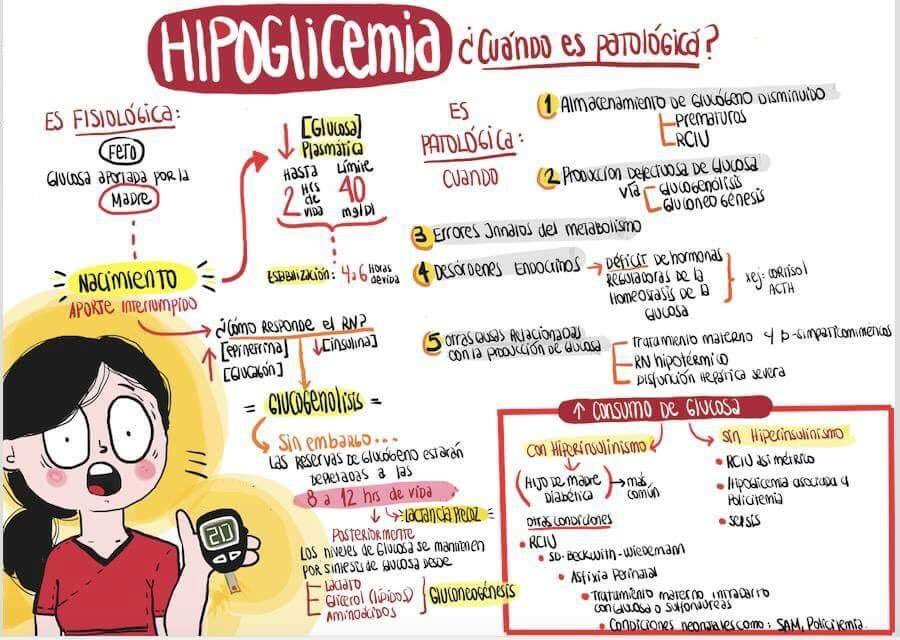 HIPOGLICEMIA ¿CUÁNDO ES PATOLÓGICA?
ES FISIOLÓGICA:
FETO
GLUCOSA APORTADA POR LA
MADRE
NACIMIENTO
APORTE INTERRUMPIDO
↓ [GLUCOSA]
PLASMÁTICA
HASTA 2 HRS DE VIDA
LÍMITE 40 mg/Dl
ESTABILIZACIÓN: 4 a 6 HORAS DE VIDA
¿CÓMO RESPONDE EL RN?
↑ [EPINEFRINA] ↓ [INSULINA]
[GLUCAGÓN]
= GLUCOGENOLISIS =
SIN EMBARGO...
LAS RESERVAS DE GLUCÓGENO ESTARÁN
DEPLETADAS A LAS
8 a 12 HRS DE VIDA
→ LACTANCIA PRECOZ
POSTERIORMENTE
LOS NIVELES DE GLUCOSA SE MANTIENEN
POR SINTESIS DE GLUCOSA DESDE
LACTATO
GLICEROL (LÍPIDOS)
AMINOÁCIDOS
GLUCONEOGÉNESIS
20
ES
PATOLÓGICA:
CUANDO
1 ALMACENAMIENTO DE GLUCÓGENO DISMINUIDO
PREMATUROS
RCIU
2 PRODUCCIÓN DEFECTUOSA DE GLUCOSA
VÍA GLUCOGENOLISIS
GLUCONEOGÉNESIS
3 ERRORES INNATOS DEL METABOLISMO
4 DESÓRDENES ENDOCRINOS → DÉFICIT DE HORMONAS
REGULADORAS DE LA
HOMEOSTASIS DE LA
GLUCOSA
xej: CORTISOL
ACTH
5 OTRAS CAUSAS RELACIONADAS
CON LA PRODUCCIÓN DE GLUCOSA
TRATAMIENTO MATERNO Y β-SIMPATICOMIMÉTICOS
RN HIPOTÉRMICO
DISFUNCIÓN HEPÁTICA SEVERA
↑ CONSUMO DE GLUCOSA
CON HIPERINSULINISMO
(HIJO DE MADRE
DIABÉTICA) → MÁS
COMÚN
OTRAS CONDICIONES
• RCIU
• SD. BECKWITH-WIEDEMANN
• ASFIXIA PERINATAL
• TRATAMIENTO MATERNO INTRAPARTO
CON GLUCOSA O SULFONILUREAS
• CONDICIONES NEONATALES COMO: SAM, POLICITEMIA
SIN HIPERINSULINISMO
• RCIU ASIMÉTRICO
• HIPOGLICEMIA ASOCIADA A
POLICITEMIA
• SEPSIS